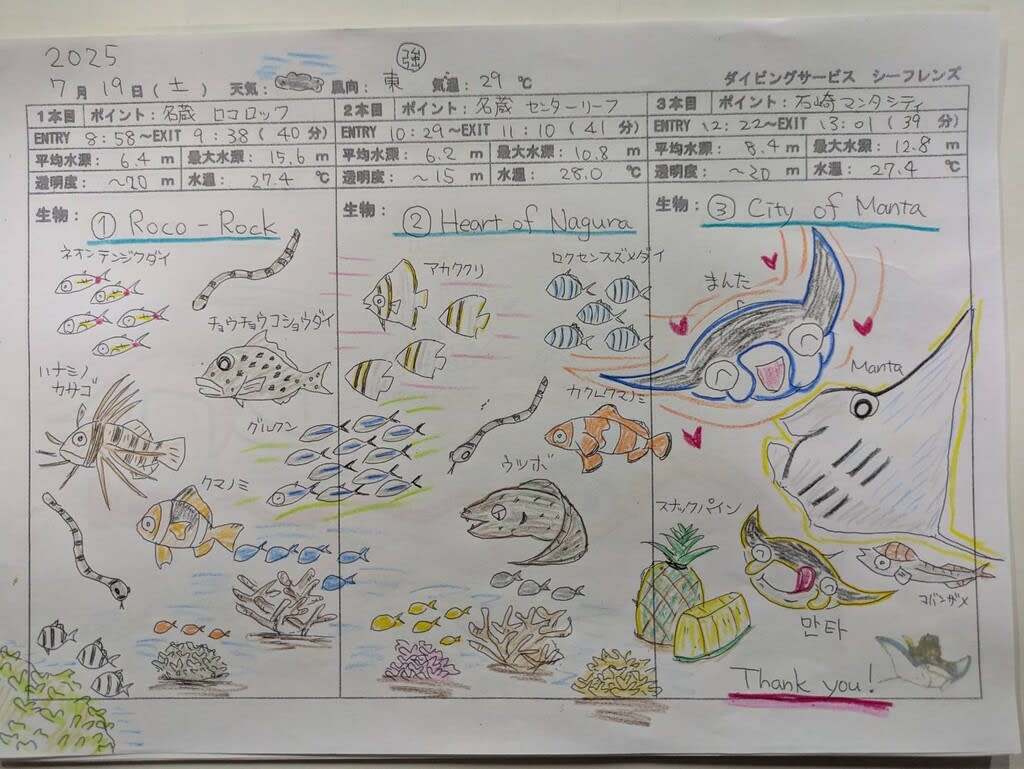 2025
7月19日(土) 天気: 風向: 東 強 気温: 29 ℃ ダイビングサービス シーフレンズ
1本目 ポイント: 名蔵 ロコロック
ENTRY 8:58～EXIT 9:38 (40 分)
平均水深: 6.4 m 最大水深: 15.6 m
透明度: ～20 m 水温: 27.4 ℃
生物: ① Roco-Rock
ネオンテンジクダイ
チョウチョウコショウダイ
ハナミノ
カサゴ
グルクン
クマノミ
2本目 ポイント: 名蔵 センターリーフ
ENTRY 10:29～EXIT 11:10 (41 分)
平均水深: 6.2 m 最大水深: 10.8 m
透明度: ～15 m 水温: 28.0 ℃
生物: ② Heart of Nagura
アカククリ
ロクセンスズメダイ
カクレクマノミ
ウツボ
3本目 ポイント: 石崎マンタシティ
ENTRY 12:22～EXIT 13:01 (39 分)
平均水深: 8.4 m 最大水深: 12.8 m
透明度: ～20 m 水温: 27.4 ℃
生物: ③ City of Manta
まんた
Manta
スナックパイン
コバンザメ
만타
Thank you!